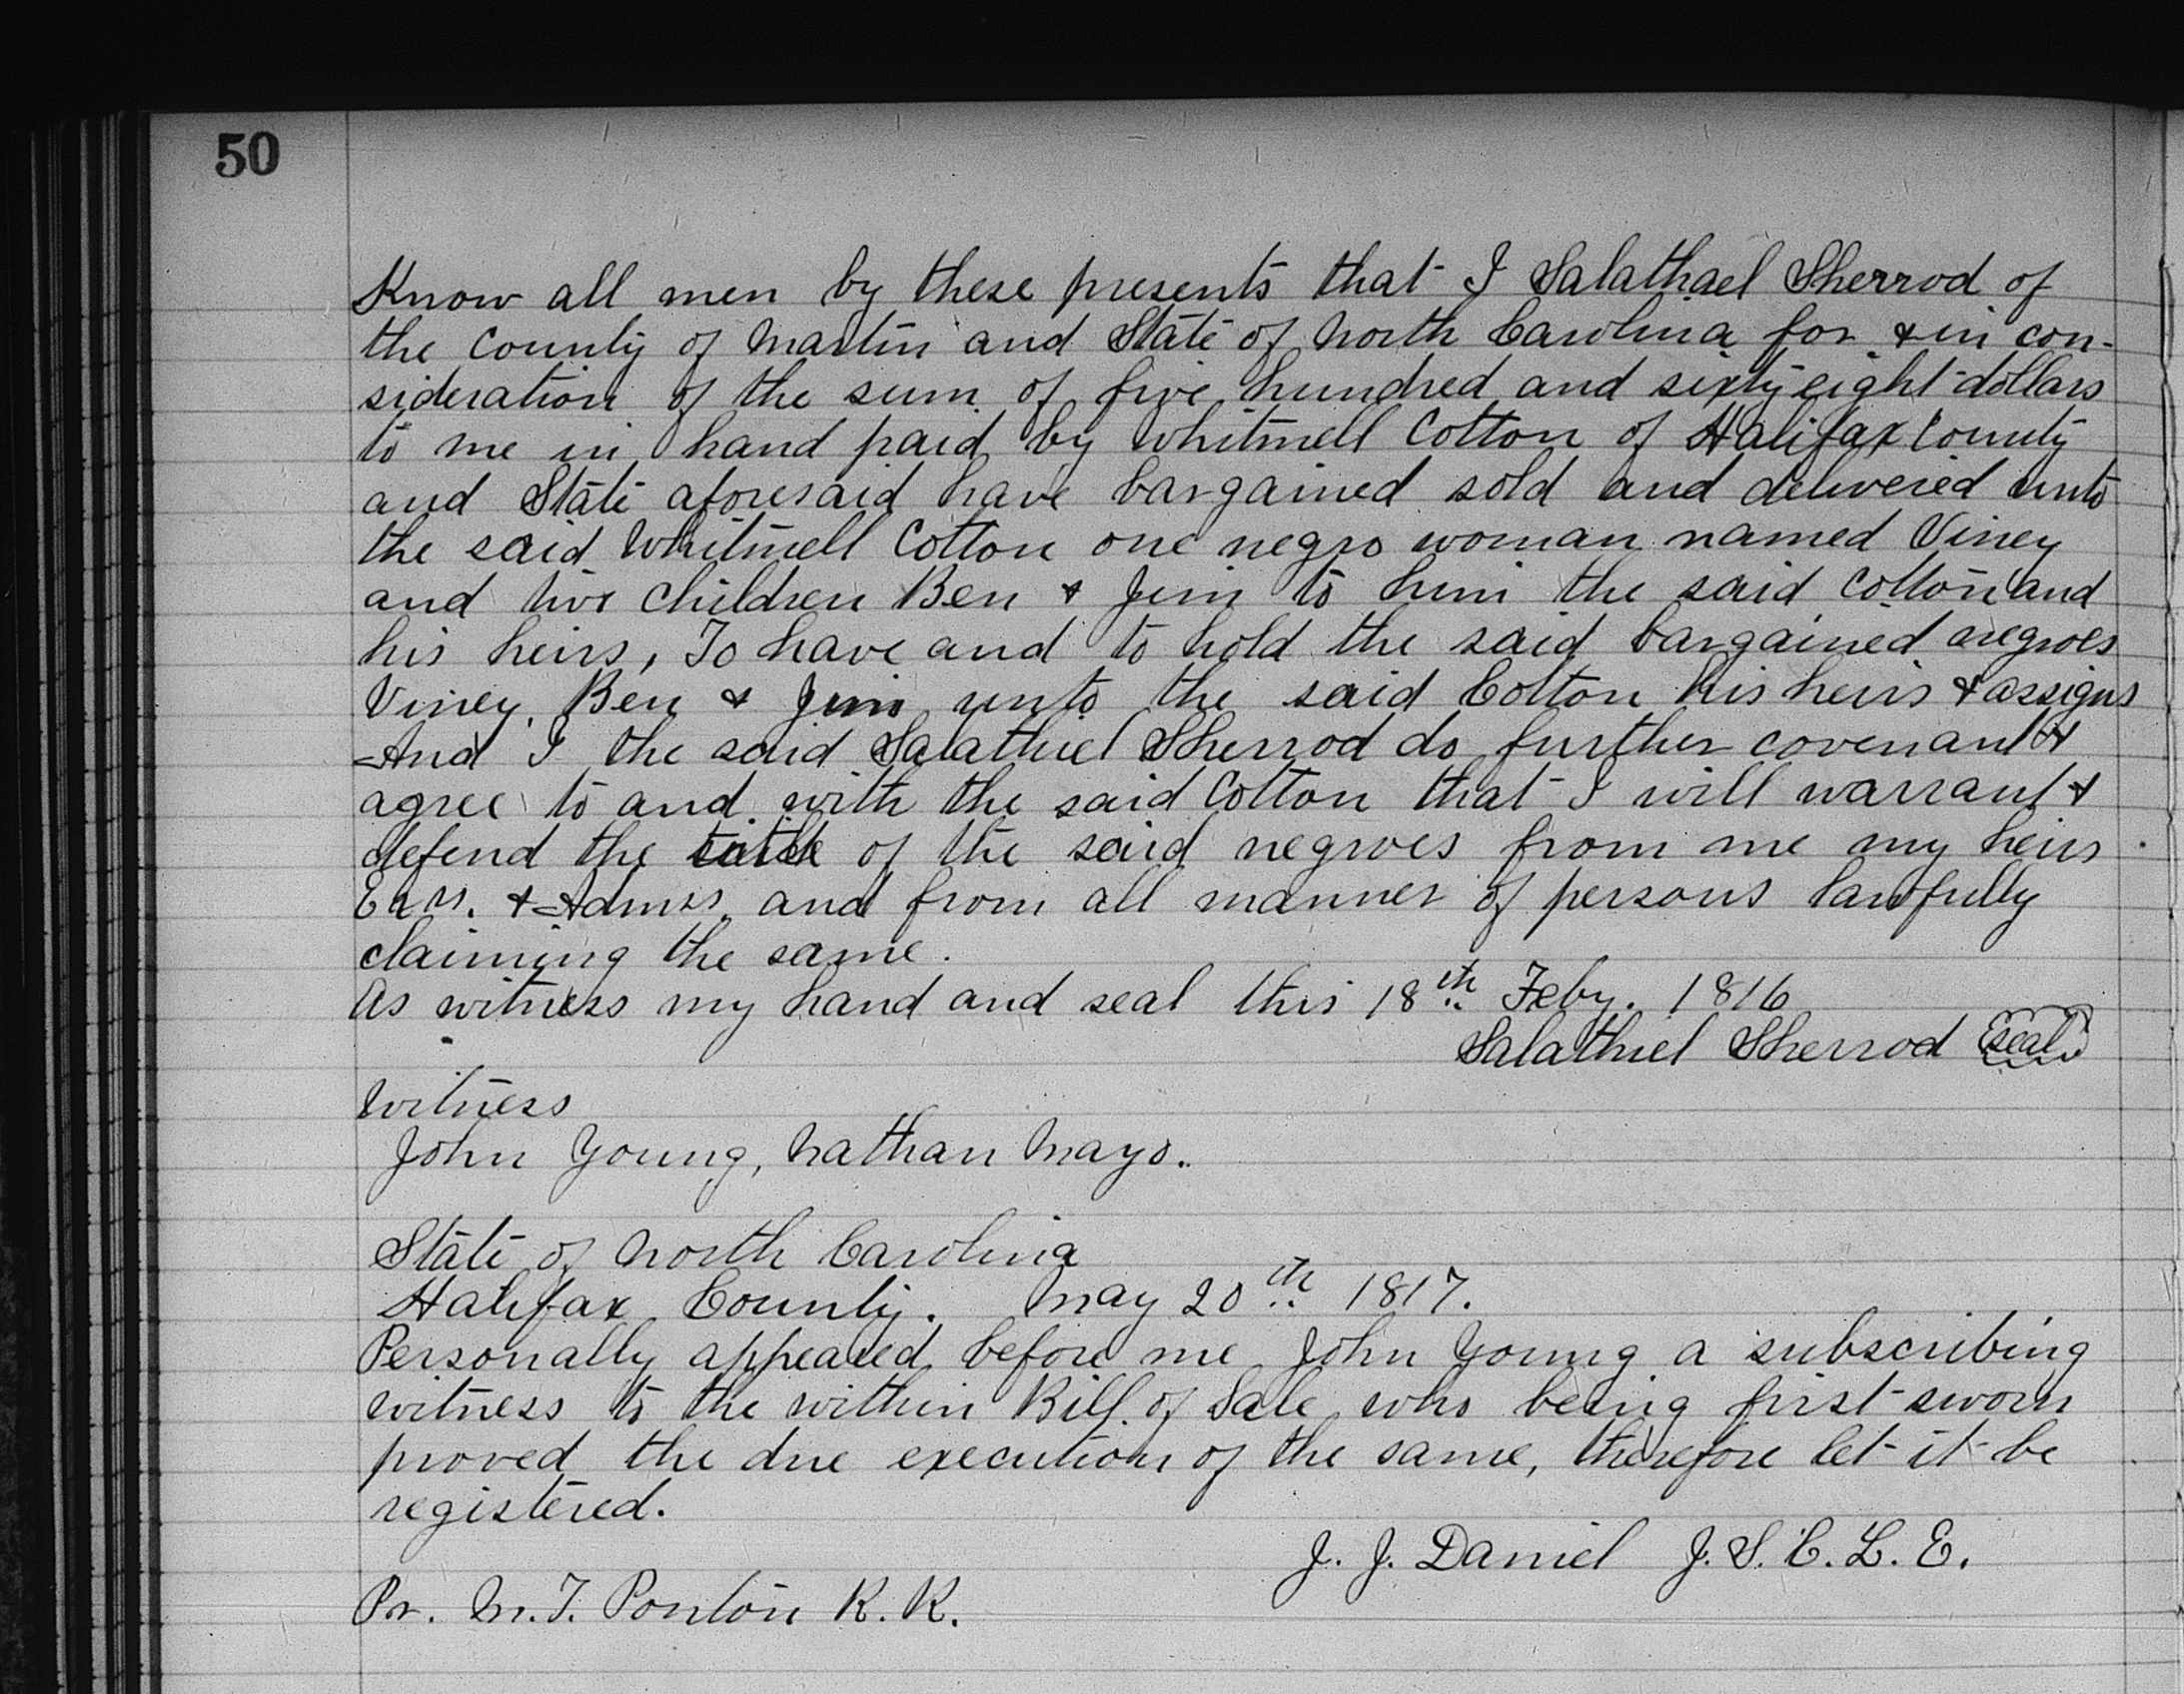 50
Know all men by these presents that I Salathael Sherrod of
the County of Martin and State of North Carolina for & in con-
sideration of the sum of five hundred and sixty eight dollars
to me in hand paid by Whitmell Cotton of Halifax County
and State aforesaid have bargained sold and delivered unto
the said Whitmell Cotton one negro woman named Viney
and two children Ben & Jim to him the said Cotton and
his heirs, To have and to hold the said bargained negroes
Viney, Ben & Jim unto the said Cotton his heirs & assigns
And I the said Salathiel Sherrod do further covenant &
agree to and with the said Cotton that I will warrant &
defend the title of the said negroes from me my heirs
Exrs. & Admrs. and from all manner of persons lawfully
claiming the same.
As witness my hand and seal this 18th Feby. 1816
Salathiel Sherrod seal
Witness
John Young, Nathan Mayo.
State of North Carolina
Halifax County. May 20th 1817.
Personally appeared before me John Young a subscribing
witness to the within Bill of Sale who being first sworn
proved the due execution of the same, therefore let it be
registered.
J. J. Daniel J. S. C. L. E.
Pr. M. T. Ponton R. R.